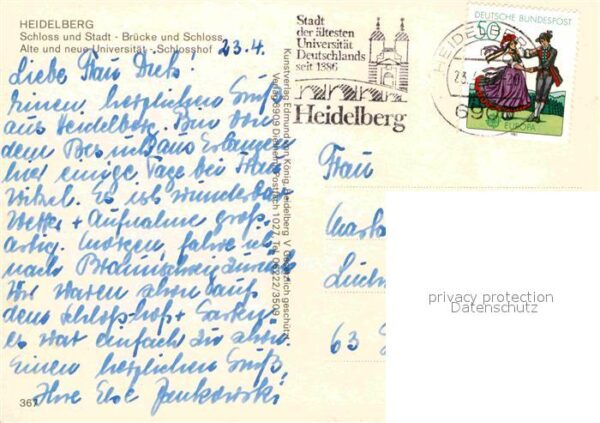 HEIDELBERG
Schloss und Stadt - Brücke und Schloss
Alte und neue Universität - Schlosshof
23.4.
Liebe Frau
Einen herzlichen Gruß
aus Heidelberg. Bin von
dem
hier einige Tage bei Frau
Es ist wunderbar
Wetter + Aufnahme groß
artig. Morgen fahre ich
nach Braunschweig zurück
Wir waren schon auf
dem Schloßhof + Garten
es war einfach zu schön
Einen herzlichen Gruß,
Ihre Else Jankowski
367
Kunstverlag Edmund von König, Heidelberg V
Verlag 6909 Dielheim Postfach 1027, Tel. 06222/3509
Stadt
der ältesten
Universität
Deutschlands
seit 1386
Heidelberg
HEIDELBERG
23.
690
DEUTSCHE BUNDESPOST
50
EUROPA
Frau
63
privacy protection
Datenschutz